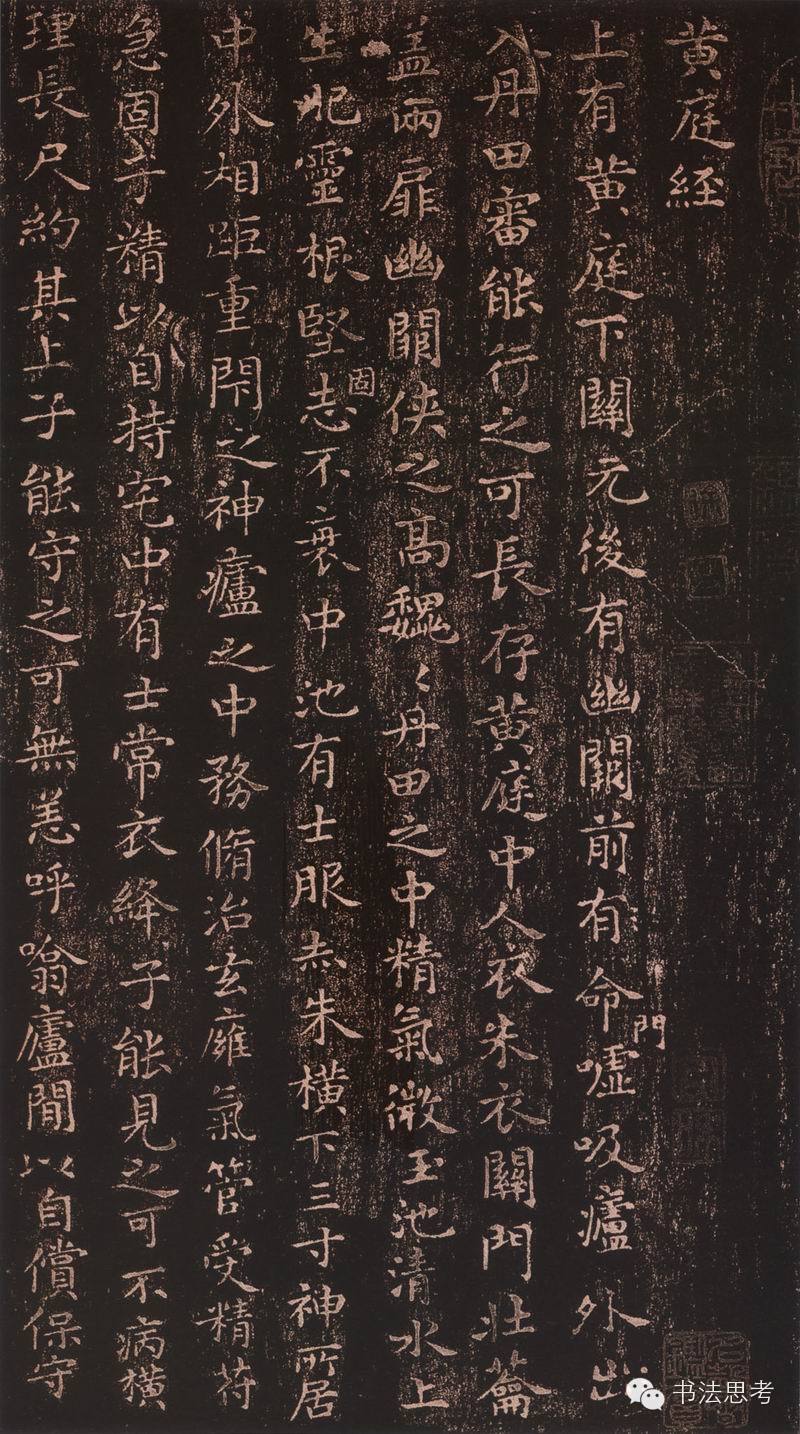 黄庭経
上有黄庭下關元後有幽闕前有命門嘘吸廬外出
入丹田審能行之可長存黄庭中人衣朱衣關門壮蘥
盖兩扉幽闕侠之髙魏〻丹田之中精氣微玉池清水上
生肥靈根堅固志不衰中池有士服赤朱横下三寸神所居
中外相距重閇之神廬之中務脩治玄𤸫氣管受精苻
急固子精以自持宅中有士常衣絳子能見之可不病横
理長尺約其上子能守之可無恙呼噏廬間以自償保守
书法思考